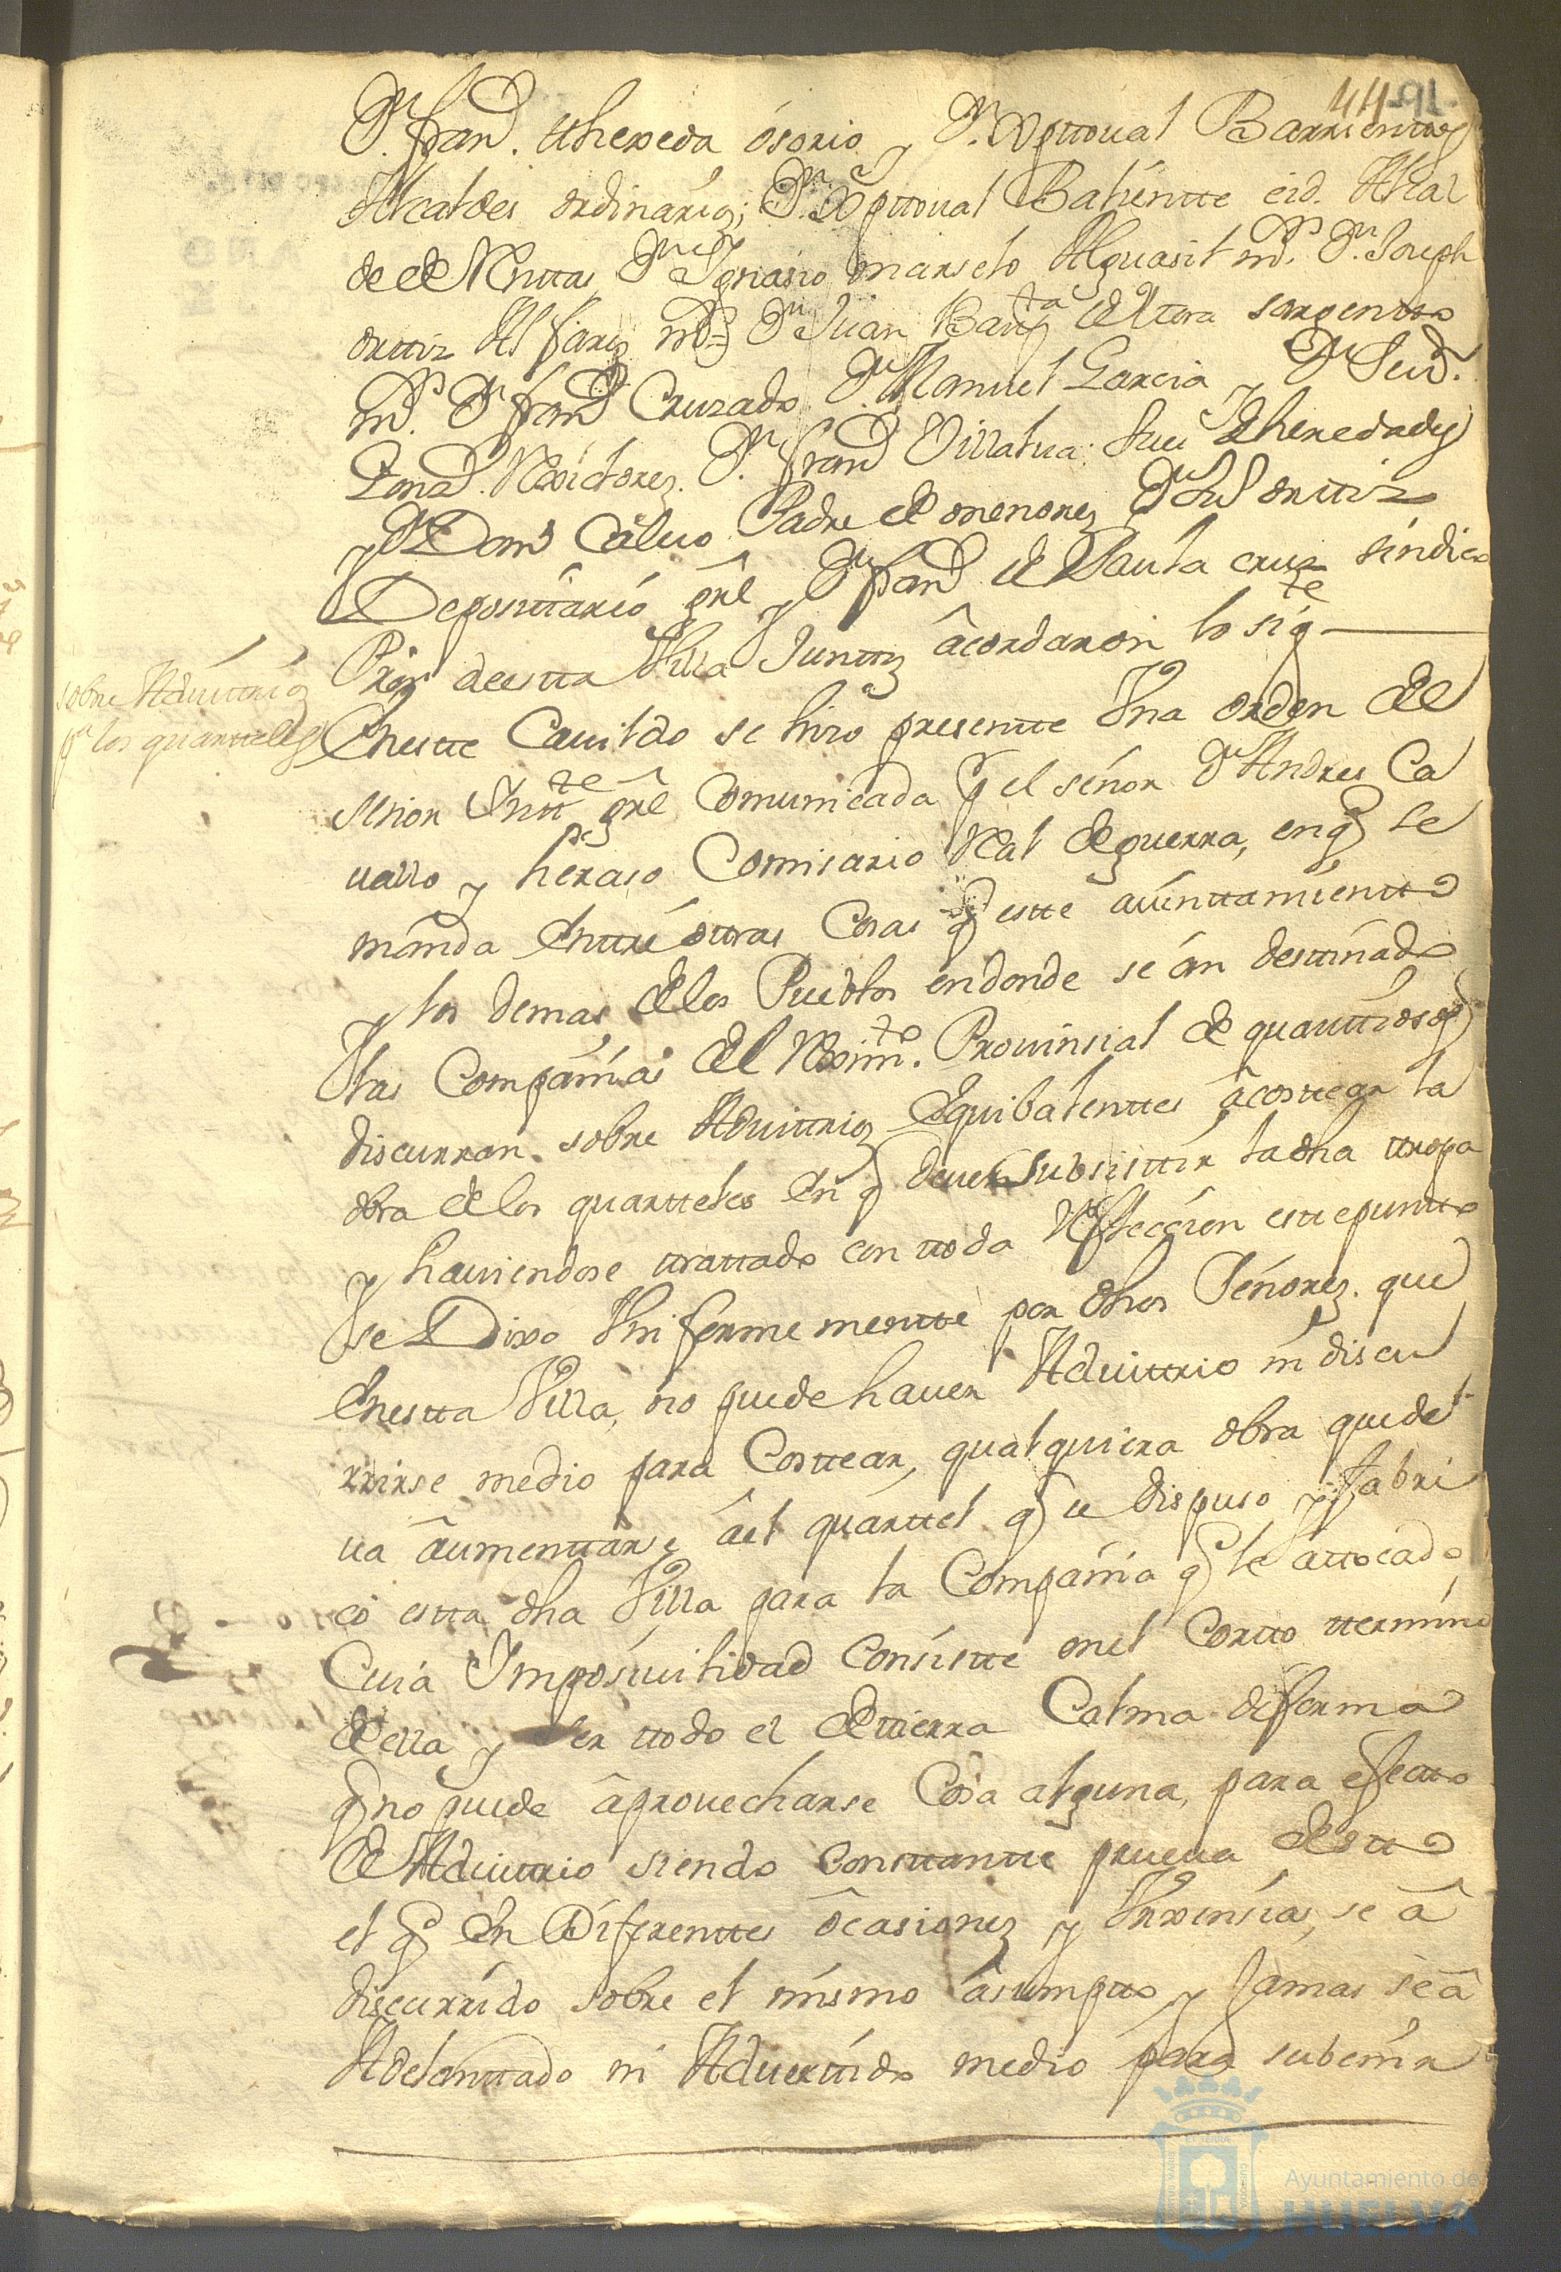 44 91
Dn. Franco. de heredia osorio y Dn. Xpttoual Barrientos
Alcaldes ordinarios; Dn. Xpttoual Balientte eid. Alcal
de de Renttas Dn. Ygnasio marselo Alguasil mr. Dn. Joseph
orttiz Alfarez mr. Dn. Juan Bautta. de tora sargentto
mr. Dn. Franco. Cruzado Dn. Manuel Garcia y Dn. 
Gonz. Rexidores. Dn. Franco. Villalua Juez de heredades
y Dn. Domo. Caluo Padre de menores Dn. orttiz
Deposittario grl. y Dn. Franco. de Paula cruz sindico
Pror. deestta Villa Junttos acordaron lo sigte.
sobre Aduittrios
pa. los quartteles
Enestte Cauildo se hizo presentte Vna orden del
señor Intte. grl Comunicada pr. el señor Dn. Andres Ca
uallo y heraso Comisario Real de guerra, enq se
manda Enttre ottras Cosas q estte aiunttamientto
y los demas de los Pueblos endonde se an desttinado
las Compañias del Reximto. Prouinsial de quanttiosos
discurran sobre Aduittrios Equibalenttes acosttear la
obra de los quartteles en q deuen subsisttir la dha ttropa
y hauiendose ttrattado con ttoda Reflección estte puntto
se Dixo Vniformementte por dhos Señores. que
Enestta Villa, no puede hauer Aduittrio ni discu
rrirse medio para Costtear, qualquiera obra quede
ua aumenttarse ael quarttel q se dispuso y fabri
co estta dha Villa para la Compañia q le attocado,
Cuia Imposiuilidad Consistte enel Cortto ttermino
de ella y ser ttodo el de ttierra Calma de forma
q no puede aprouecharse Cosa alguna, para efectto
de Aduittrio siendo consttantte prueua de estto
el q En Diferenttes ocasiones y Vrxensias, se a
discurrido sobre el mismo asumptto y Jamas se a
Adelanttado ni Aduerttido medio para subenir
Ayuntamiento de
HUELVA